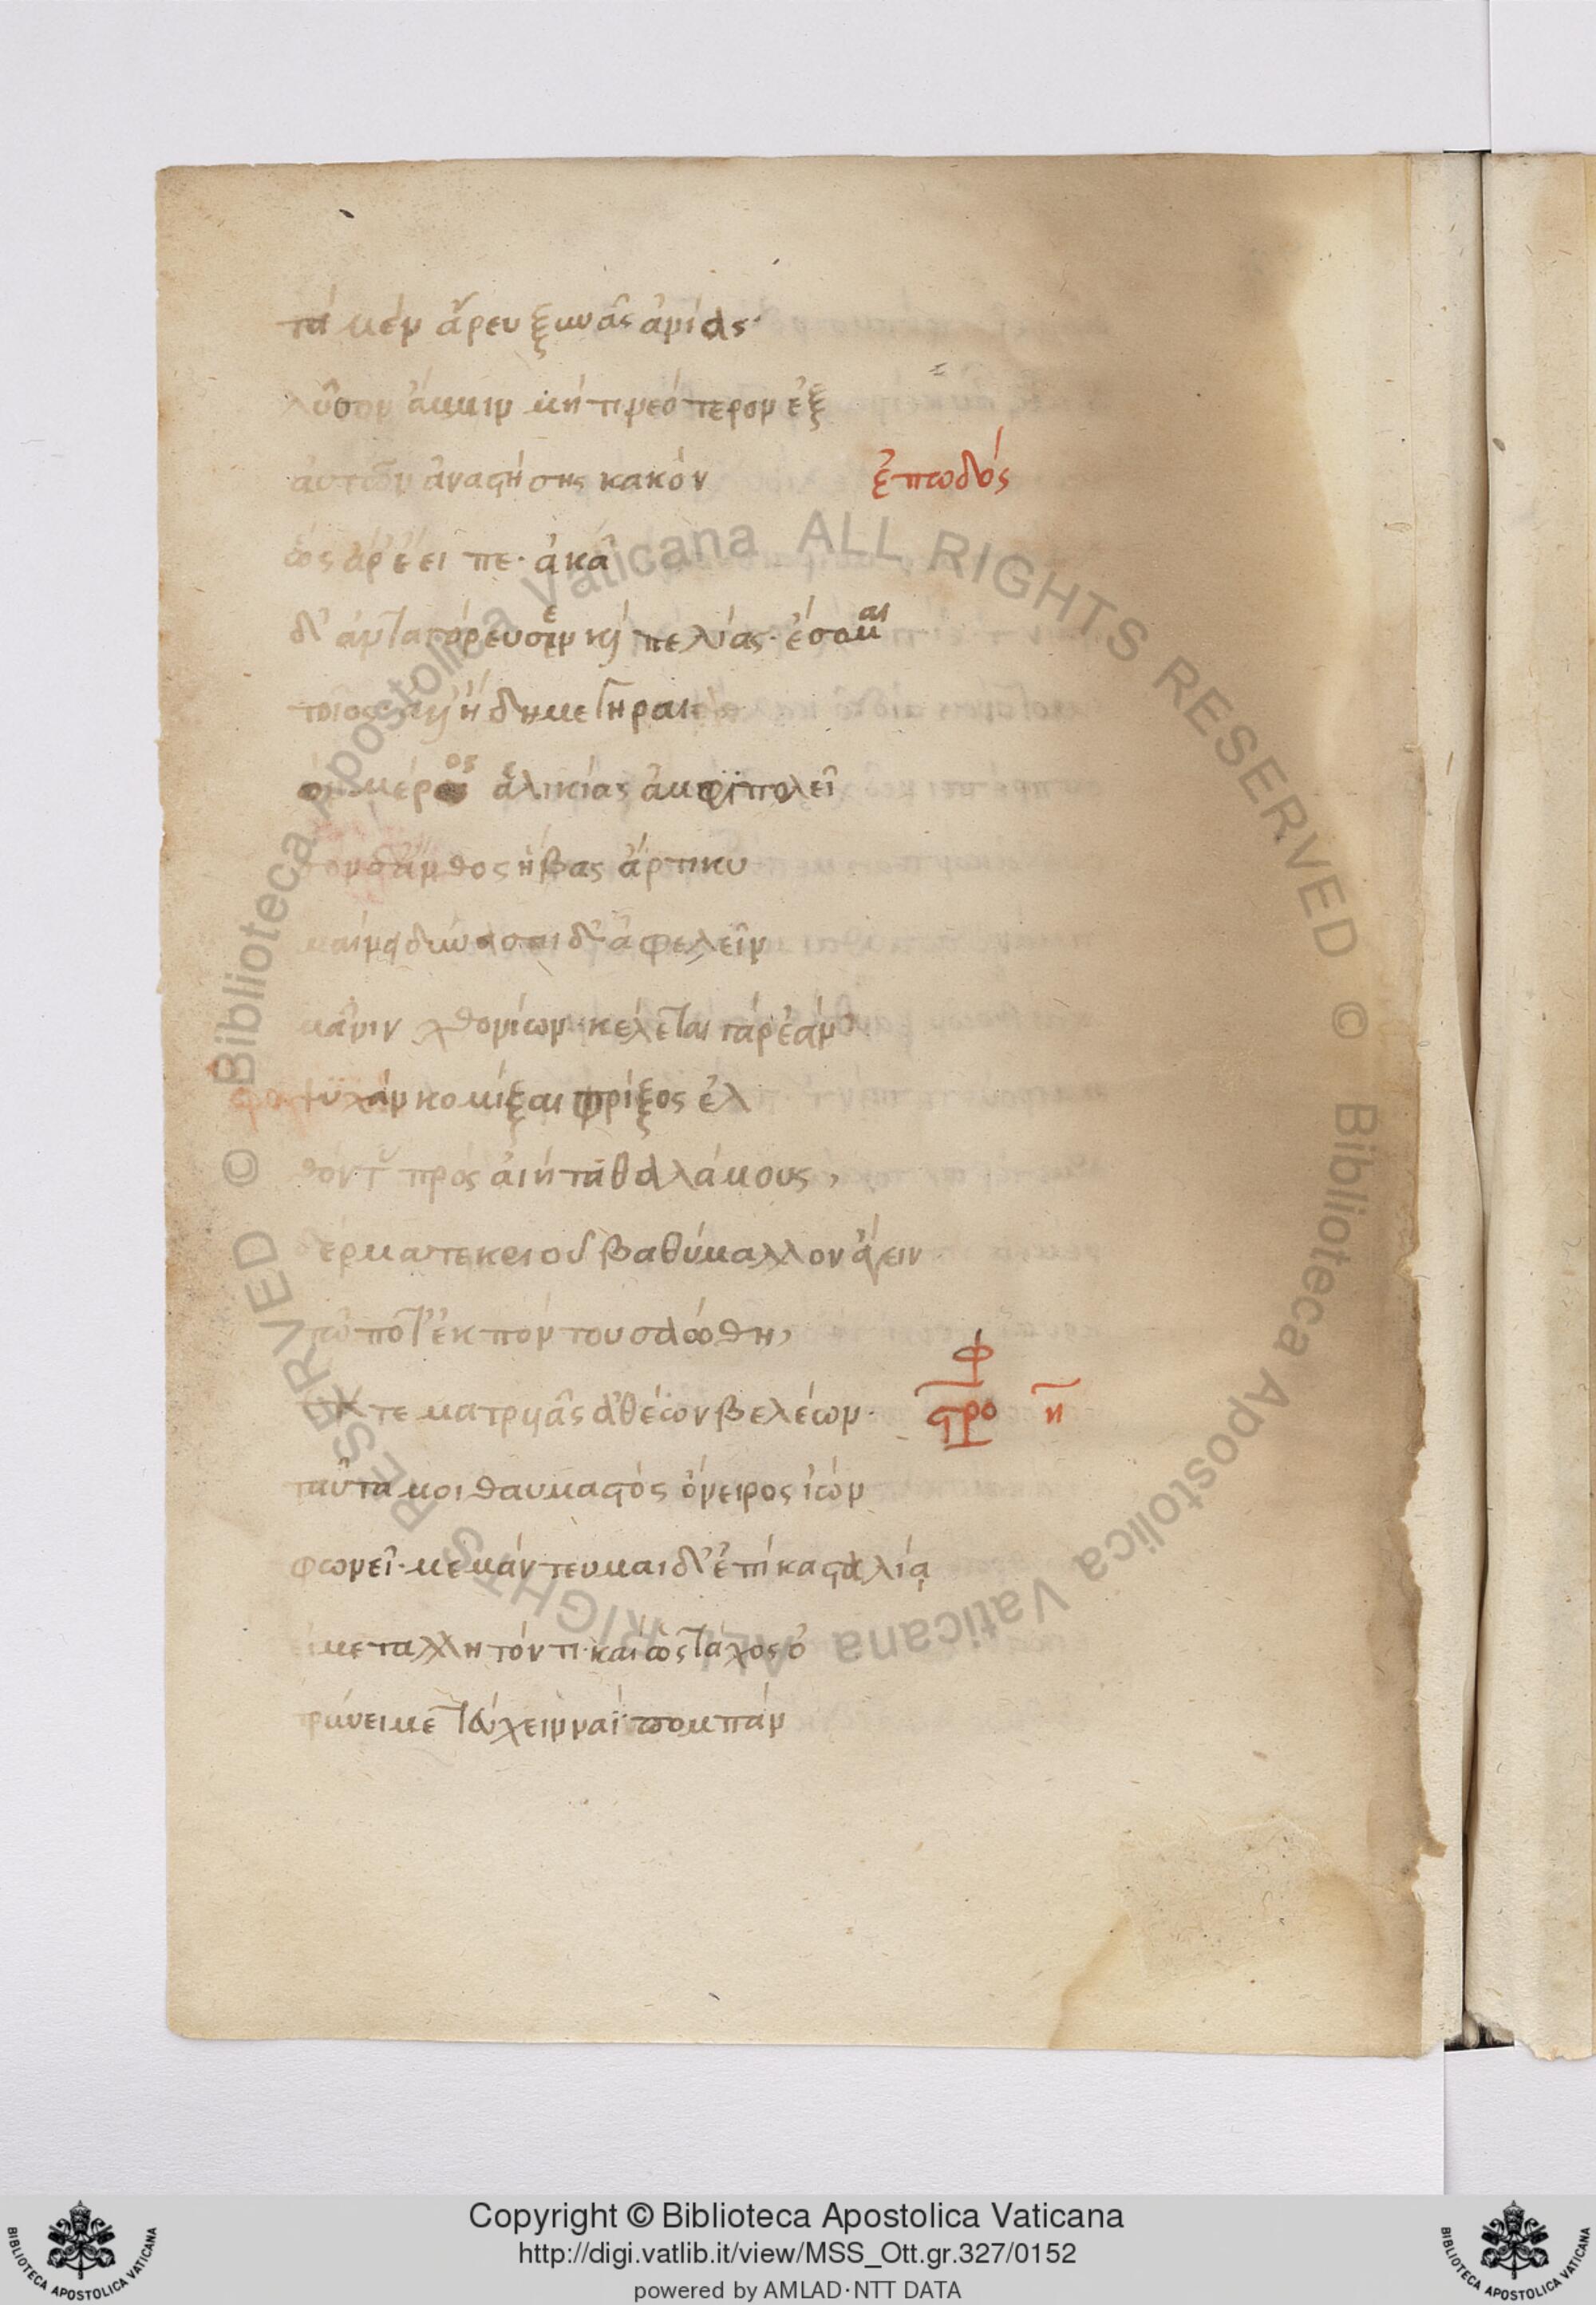 τὰ μὲν ἄνευ ξυνᾶς ἀνίας·
λῦσον ἄμμιν μή τι νεότερον ἐξ
αὐτῶν ἀναστήσης κακόν
ἐπωδός
ὡς ἄρ' ἔειπε· ἀκᾶ
δ' ἀνταγόρευσεν κὴ πελίας· ἔσομαι
τοῖος· ἀλλ' ἤδη με γηραι
ὸν μέρος ἁλικίας ἀμφιπολεῖ
σὸν δ' ἄνθος ἥβας ἄρτι κυ
μαίνει δύνασαι δ' ἀφελεῖν
μᾶνιν χθονίων· κέλεται γὰρ ἑὰν
ψυχὰν κομίξαι φρίξος ἐλ
θόντ πρὸς αἰήτα θαλάμους,
δέρμα τε κριοῦ βαθύμαλλον ἄγειν
τῷ ποτ' ἐκ πόντου σαώθη,
ἔκ τε ματρυιᾶς ἀθέων βελέων·
στρο η
ταῦτα μοι θαυμαστὸς ὄνειρος ἰὼν
φωνεῖ· μεμάντευμαι δ' ἐπὶ κασταλίᾳ
εἰ μεταλλητόν τι· καὶ ὡς τάχος ὀ
τρύνει με τεύχειν ναῒ πομπάν
Copyright © Biblioteca Apostolica Vaticana
http://digi.vatlib.it/view/MSS_Ott.gr.327/0152
powered by AMLAD·NTT DATA
© Biblioteca Apostolica Vaticana ALL RIGHTS RESERVED
© Biblioteca Apostolica Vaticana ALL RIGHTS RESERVED
BIBLIOTECA APOSTOLICA VATICANA
BIBLIOTECA APOSTOLICA VATICANA